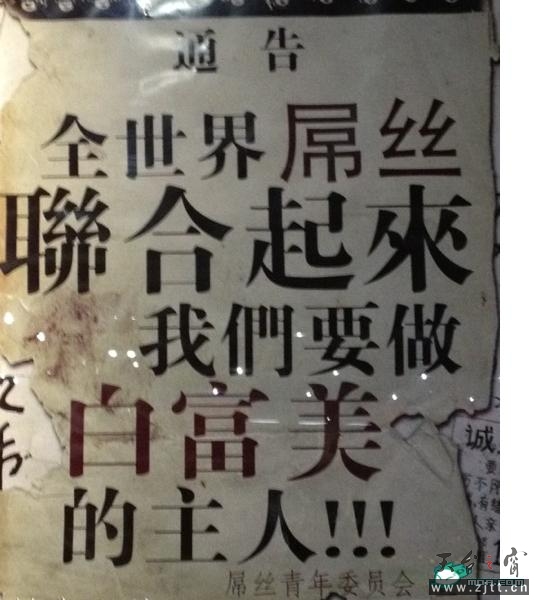 通告
全世界屌丝
聯合起來
我們要做
白富美
的主人!!!
屌丝青年委员会
诚
www.zjtt.cn